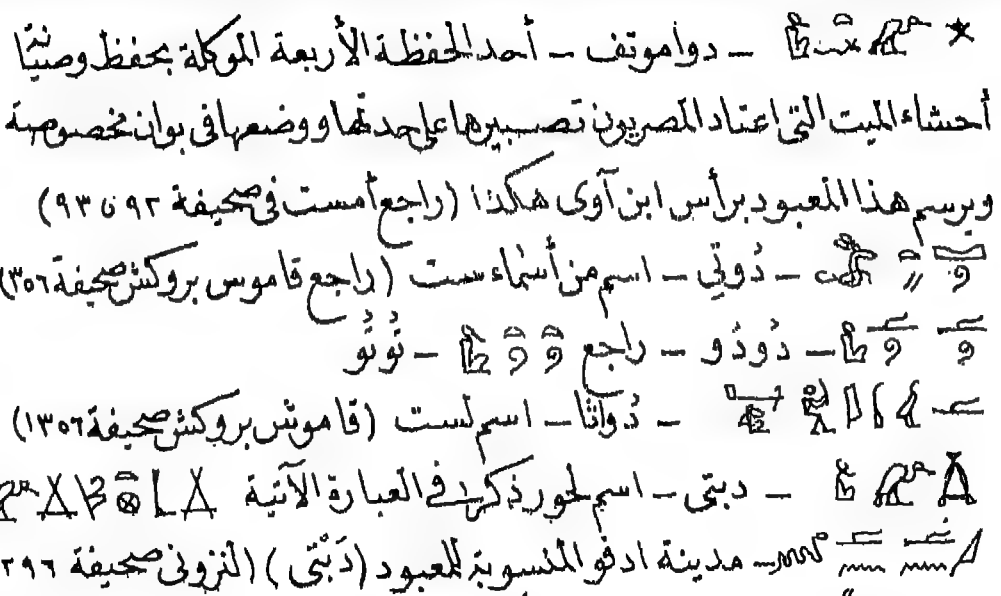 – دواموتف – أحد الحفظة الأربعة الموكلة بحفظ وصيانة
أحشاء الميت التى اعتاد المصريون تصبيرها على حدتها ووضعها فى بوان مخصوصة
ويرسم هذا المعبود برأس ابن آوى هكذا (راجع أمست فى صحيفة ٩٢ ٩٣)
– دُوتي – اسم من أسماء ست (راجع قاموس بروكش صحيفة ٣٥٦)
– دُودُو – راجع – تُوتُو
– دُواثا – اسم لست (قاموس بروكش صحيفة ١٣٥٦)
– دبتى – اسم لحور ذكر فى العبارة الآتية
– مدينة ادفو المنسوبة للمعبود (دَبْتى) (النزونى صحيفة ٢٩٦